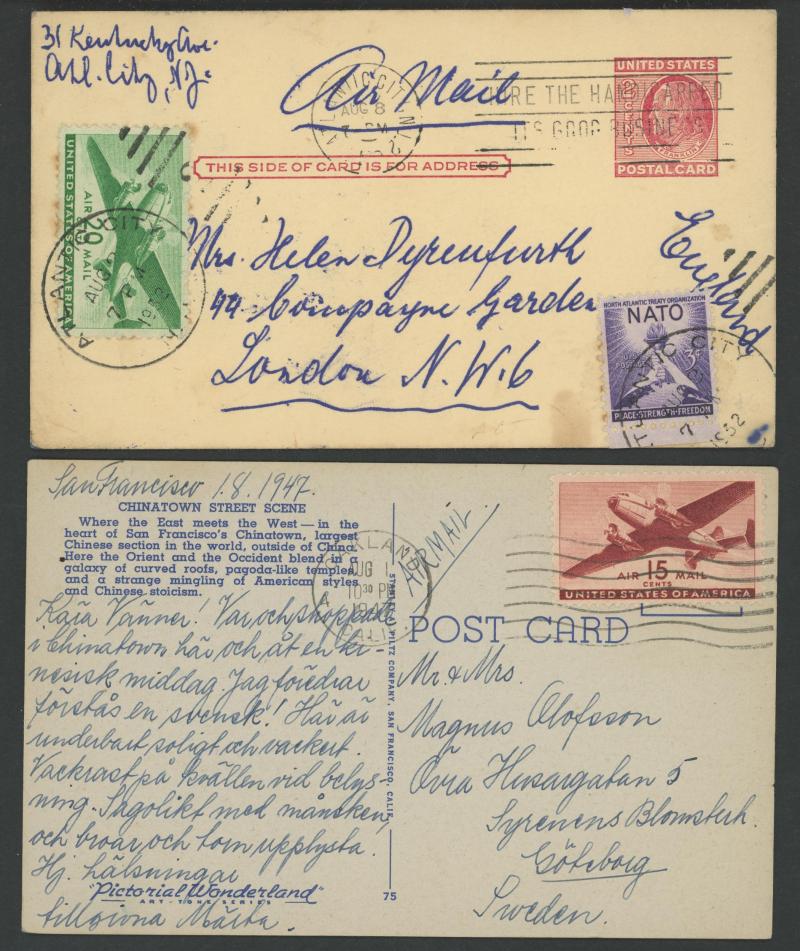 31 Kentucky Ave.
Atl. City, N.J.
Air Mail
ATLANTIC CITY, N.J. 2
AUG 8
7 PM
HIRE THE HANDICAPPED
IT'S GOOD BUSINESS
UNITED STATES
2 CENTS 2
FRANKLIN
POSTAL CARD
THIS SIDE OF CARD IS FOR ADDRESS
UNITED STATES OF AMERICA
AIR MAIL
20
ATLANTIC CITY
AUG
7 PM
1952
Mrs. Helen Dyrenfurth
44 Compayne Garden
London N.W.6
England
NORTH ATLANTIC TREATY ORGANIZATION
NATO
U.S. POSTAGE
3¢
PEACE-STRENGTH-FREEDOM
ATLANTIC CITY
7 PM
1952
San Francisco 1.8.1947.
CHINATOWN STREET SCENE
Where the East meets the West — in the
heart of San Francisco's Chinatown, largest
Chinese section in the world, outside of China.
Here the Orient and the Occident blend in a
galaxy of curved roofs, pagoda-like temples,
and a strange mingling of American styles
and Chinese stoicism.
Kära Vänner! Var och shoppade
i Chinatown här och åt en ki-
nesisk middag. Jag föredrar
förstås en svensk! Här är
underbart soligt och vackert.
Vackrast på kvällen vid belys-
ning. Sagolikt med månsken,
och broar och torn upplysta.
Hj. hälsningar
"Pictorial Wonderland"
ART-TONE SERIES
tillgivna Märta.
STANLEY A. PILTZ COMPANY, SAN FRANCISCO, CALIF.
75
AIRMAIL
OAKLAND
AUG 1
10 30 PM
1947
CALIF.
AIR 15 MAIL
CENTS
UNITED STATES OF AMERICA
POST CARD
Mr. & Mrs.
Magnus Olofsson
Övra Husargatan 5
Syrenens Blomsterh.
Göteborg
Sweden.